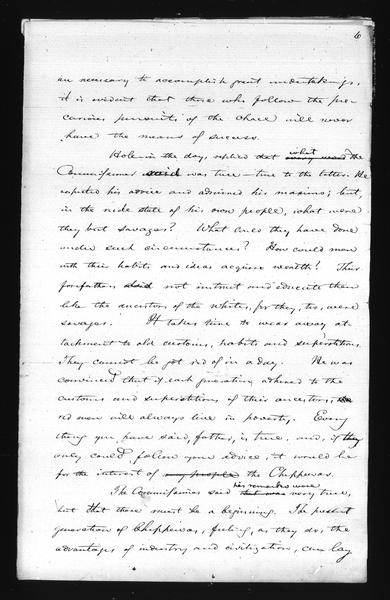 6
are necessary to accomplish great undertakings,
it is evident that those who follow the pre-
carious pursuits of the chase will never
have the means of success.
Hole in the day, replied that every word what the
Commissioner said was true - true to the letter. He
respected his advice and admired his maxims; but,
in the rude state of his own people, what were
they but savages? What could they have done
under such circumstances? How could men
with their habits and ideas acquire wealth? Their
forefathers did not instruct and educate them
like the ancestors of the whites, for they, too, were
savages. It takes time to wear away at-
tachment to old customs, habits and superstitions.
They cannot be got rid of in a day. He was
convinced that if each generation adhered to the
customs and superstitions of their ancestors, the
red men will always live in poverty. Every
thing you have said, father, is true, and, if they
only could follow your advice, it would be
for the interest of my people the Chippewas.
The Commissioner said that was his remarks were very true,
but that there must be a beginning. The present
generation of Chippewas, feeling, as they do, the
advantages of industry and civilization, can lay